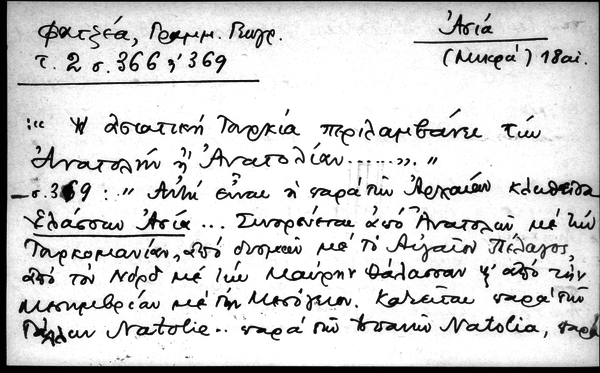 Φατζέα, Γραμμ. Γεωγρ.
τ. 2 σ. 366 ἢ 369
Ἀσία
(Μικρά) 18αι.
:" Ἡ ἀσιατική Τουρκία περιλαμβάνει τήν
Ἀνατολήν ἢ Ἀνατολίαν......". "
–σ. 369 : " Αὐτή εἶναι ἡ παρά τῶν Ἀρχαίων κληθεῖσα
Ἐλάσσων Ἀσία ... Συνορεύεται ἀπό Ἀνατολῶν μέ τήν
Τουρκομανίαν, ἀπό δυσμῶν μέ τό Αἰγαῖον Πέλαγος,
ἀπό τόν Νόρδ μέ τήν Μαύρην θάλασσαν κ' ἀπό τήν
Μεσημβρίαν μέ τήν Μεσόγειον. Καλεῖται παρά τῶν
Γάλλων Natolie .. παρά τῶν Ἱσπανῶν Natolia, παρά